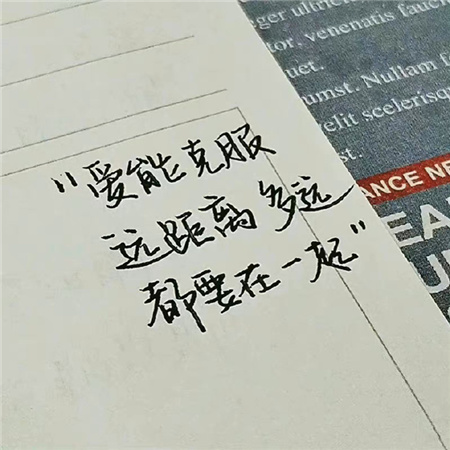 "爱能克服
远距离多远
都要在一起"
ger ultric
tor, venenatis fauc
uet.
umst. Nullam f
velit scelerisq
st.
ANCE NE
EA
U